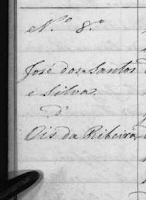 N.º 8.º
José dos Santos
e Silva.
d'
Ois da Ribeira